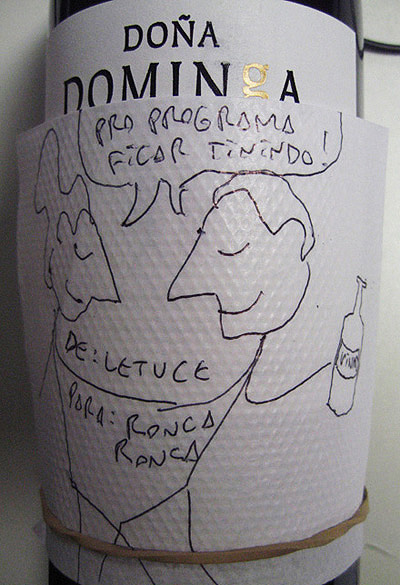 DOÑA
DOMINgA
PRO PROGRAMA
FICAR TININDO!
VINHO
DE: LETUCE
PARA: RONCA
RONCA